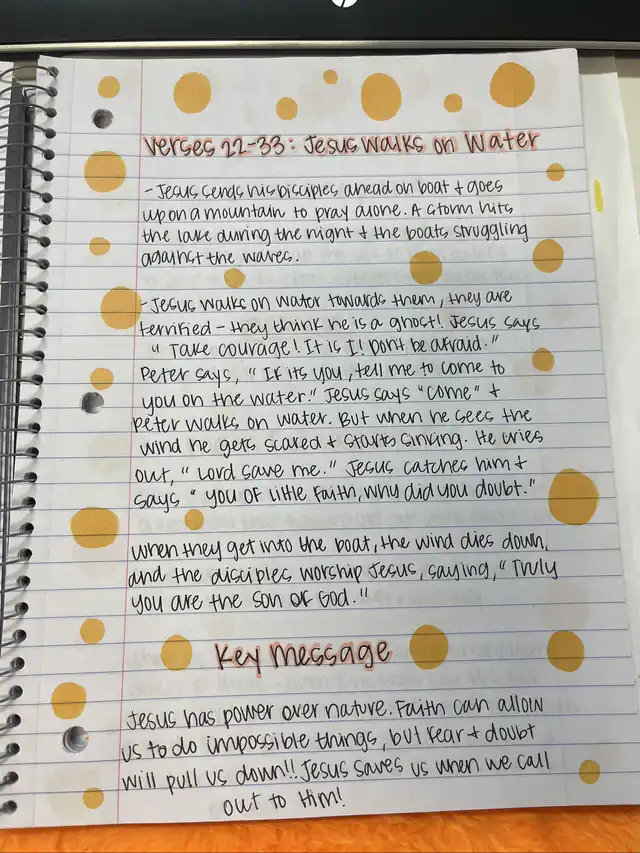 Verses 22-33: Jesus Walks on Water
- Jesus sends his disciples ahead on boat + goes
up on a mountain to pray alone. A storm hits
the lake during the night + the boats struggling
against the waves.
- Jesus walks on water towards them, they are
terrified - they think he is a ghost! Jesus says
" Take courage! It is I! Dont be afraid."
Peter says, " If its you, tell me to come to
you on the water." Jesus says "come" +
Peter walks on water. But when he sees the
wind he gets scared + starts sinking. He cries
out, " Lord save me." Jesus catches him +
says " you of little faith, why did you doubt."
When they get into the boat, the wind dies down,
and the disciples worship Jesus, saying, " Truly
you are the son of God."
Key Message
Jesus has power over nature. Faith can allow
us to do impossible things, but fear + doubt
will pull us down!! Jesus saves us when we call
out to Him!